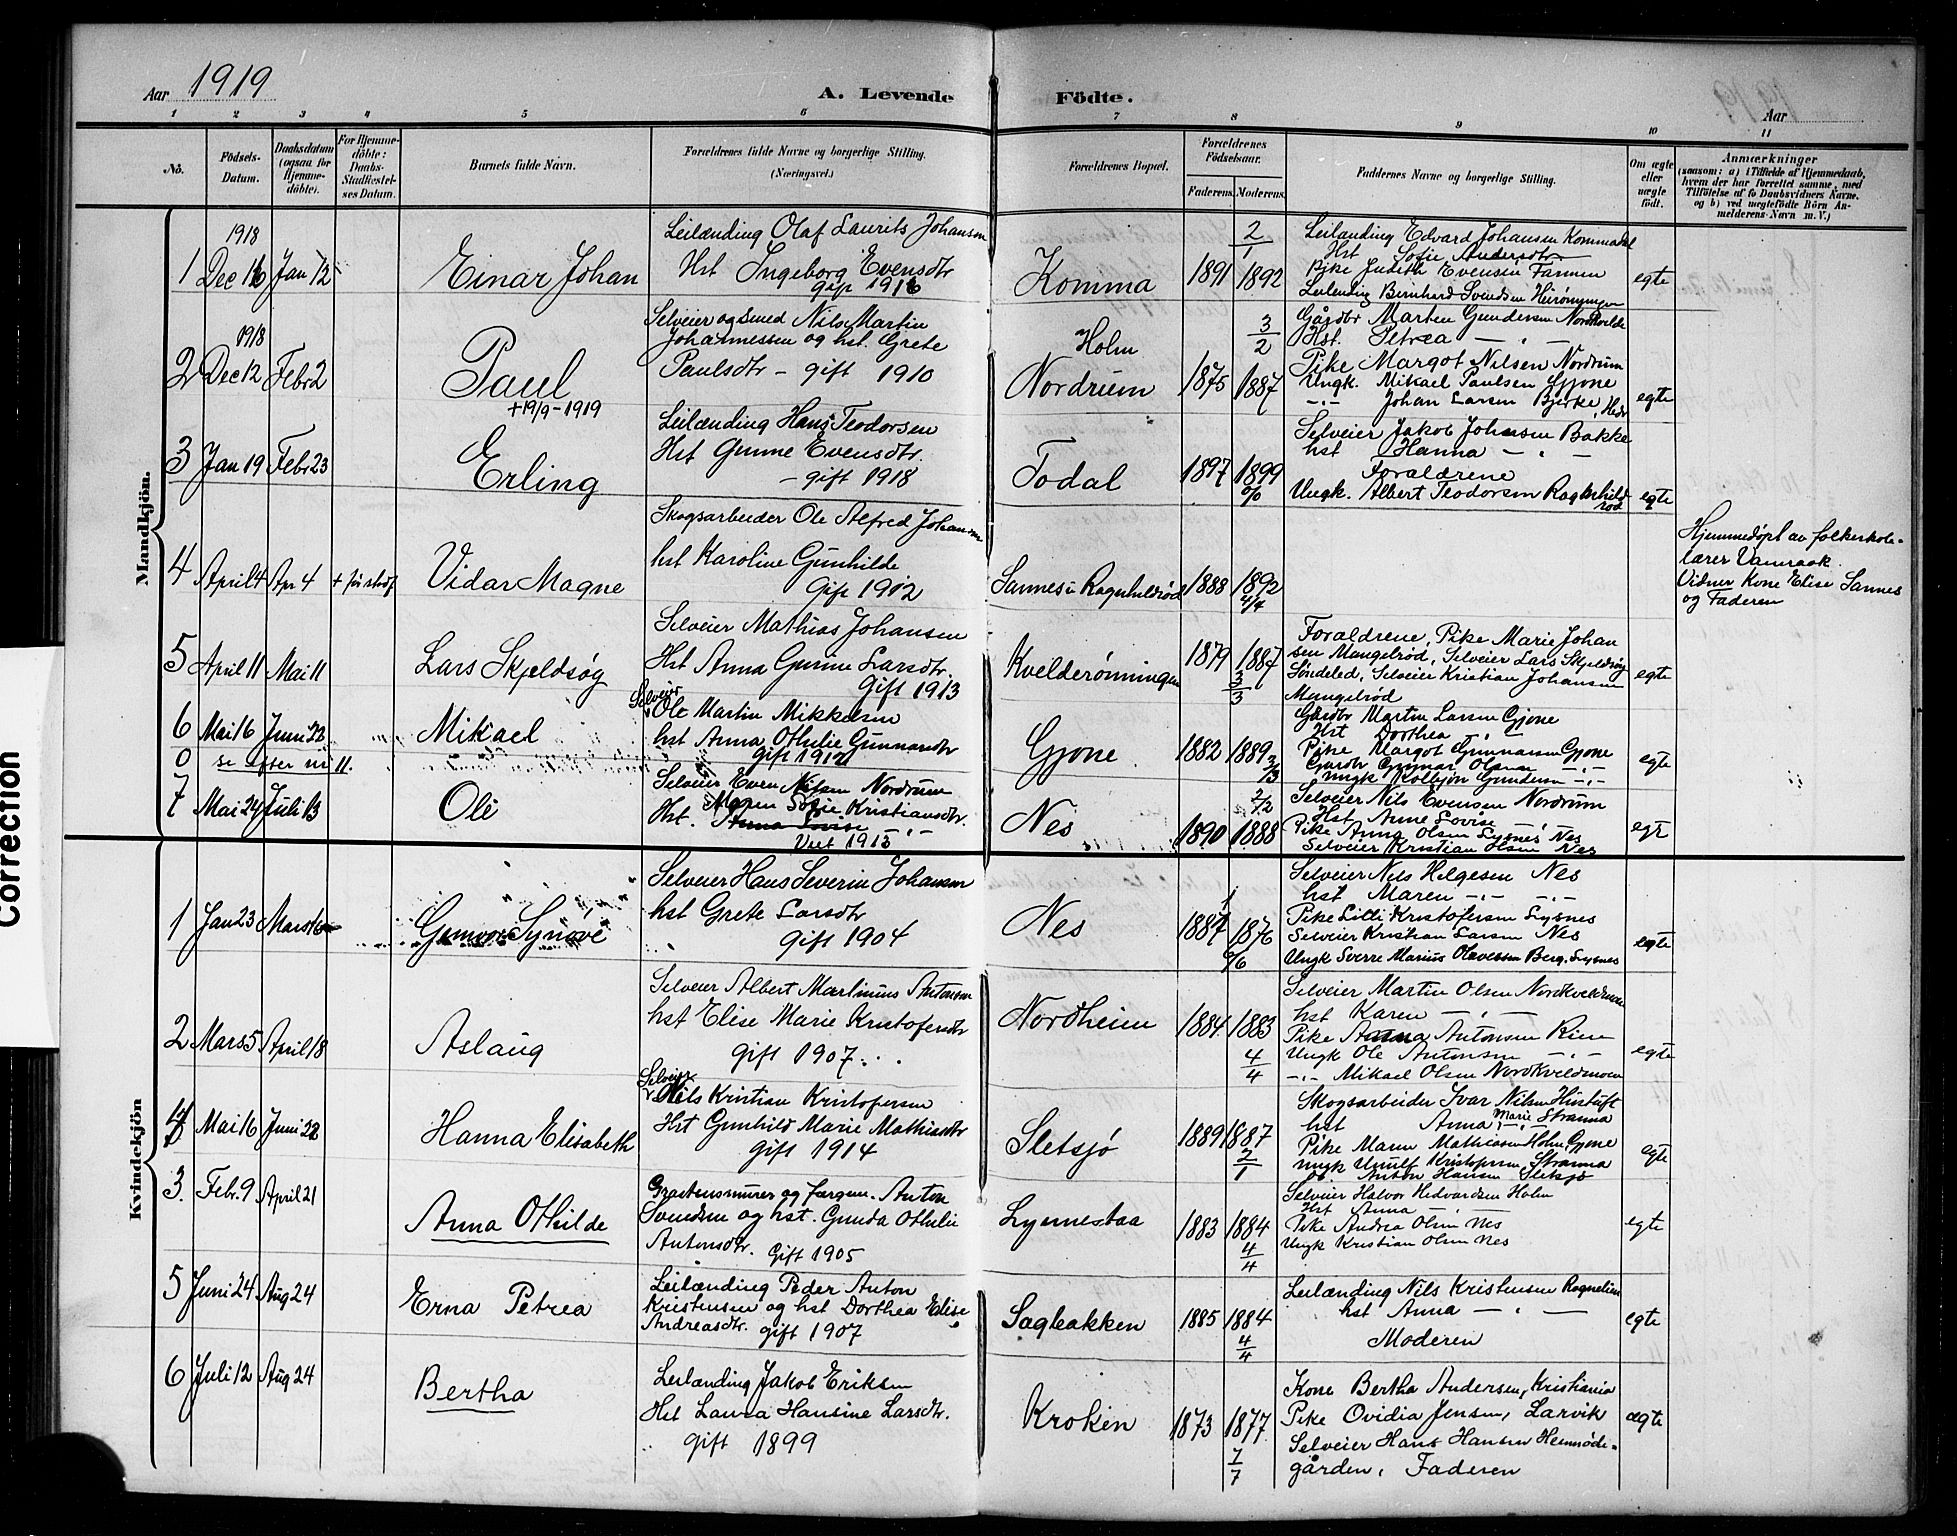 Aar 1919
A. Levende Födte.
Aar
1 2 3 4 5 6 7 8 9 10 11
No.
Födsels-Datum.
Daabsdatum (ogsaa for Hjemmedöbte).
For Hjemmedöbte: Daabs-Stadfæstelses Datum.
Barnets fulde Navn.
Forældrenes fulde Navne og borgerlige Stilling. (Næringsvei.)
Forældrenes Bopæl.
Forældrenes Födselsaar.
Faderens. Moderens.
Faddernes Navne og borgerlige Stilling.
Om ægte eller uægte födt.
Anmærkninger
(saasom: a) i Tilfælde af Hjemmedaab, hvem der har forrettet samme, med Tilföielse af to Daabsvidners Navne. og b) ved uegtefödte Börn Anmelderens Navn m. V.)
Mandkjön.
1 1918 Dec 16 Jan 12 Einar Johan
Leilænding Olaf Laurits Johansen
Hst Ingeborg Evensdtr
gift 1916
Komma 1891 1892 2/1
Leilænding Edvard Johansen Kommadal
Hst Sofie Andersdtr
Pike Judith Evensen Farmen
Leilending Bernhard Svendsen
egte
2 1918 Dec 12 Febr 2 Paul
+19/9-1919
Selveier og smed Nils Martin
Johannessen og hst. Grete
Paulsdtr - gift 1910
Holm
Nordrum 1875 1887 3/2
Gårdbr Marten Gundersen Nordkvelde
Hst. Petrea — " —
Pike Margot Nilsen Nordrum
Ungk. Mikael Paulsen Gjone
-"- Johan Larsen Bjerke, Hedr
egte
3 Jan 19 Febr 23 Erling
Leilænding Hans Teodorsen
Hst Gunne Evensdtr.
- gift 1918
Todal 1897 1899 0/0
Selveier Jakob Johnsen Bakke
hst Hanna — " —
Forældrene
Ungk. Albert Teodorsen Ragnhildrød
egte
4 April 4 Apr 4 Vidar Magne
Skogsarbeider Ole Alfred Johansen
hst Karoline Gunhilde
Gift 1912
Sannes i Ragnhildrød 1888 1892 4/4
Hjemmedøpt av folkeskole-
lærer Vamraak.
Vidner Kone Elise Sannes
og Faderen
5 April 11 Mai 11 Lars Skjeldsøg
Selveier Mathias Johansen
Hst Anna Gurine Larsdtr.
Gift 1913
Kvelderønningen 1879 1887 3/3
Forældrene, Pike Marie Johan
sen Mangelrød, Selveier Lars Skjeldsøg
Søndeled, Selveier Kristian Johansen
Mangelrød
egte
6 Mai 16 Juni 22 Mikael
Selveier
Ole Martin Mikkelsen
hst Anna Othilie Gunnarsdtr
Gift 1912
Gjone 1882 1889 3/3
Gårdbr Martin Larsen Gjone
Hst Dorthea — " —
Pike Margot Gunnarsen Gjone
Gårdbr Gunnar Olsen -"-
Ungk Kolbjørn Gundersen -"-
egte
0 se efter nr 11.
7 Mai 24 Juli 13 Ole
Selveier Even Nilsen Nordrum
Hst. Maren Sofie Kristiansdtr.
Anna Lovise -"-
Viet 1913
Nes 1890 1888 2/2
Selveier Nils Evensen Nordrum
Hst Anne Lovise
Pike Anna Olsen Lysnes Nes
Selveier Kristian Olsen Nes
egte
Kvindekjön
1 Jan 23 Mars 16 Gunvor Synøve
Selveier Hans Severin Johansen
hst Grete Larsdtr
gift 1904
Nes 1887 1876 6/6
Selveier Nils Helgesen Nes
hst Maren -"- -"-
Pike Lilli Kristofersen Lysnes
Selveier Kristian Larsen Nes
Ungk Sverre Marius Olavesen Berg. Lysnes
egte
2 Mars 5 April 18 Aslaug
Selveier Albert Martinius Antonsen
hst Elise Marie Kristofersdtr
gift 1907
Nordheim 1884 1883 4/4
Selveier Martin Olsen Nordkveldmoen
hst Karen — " —
Pike Anna Antonsen Riim
Ungk Ole Antonsen -"-
-"- Mikael Olsen Nordkveldmoen
egte
4 Mai 16 Juni 22 Hanna Elisabeth
Selveier
Nils Kristian Kristofersen
Hst Gunhild Marie Mathiasdtr
gift 1914
Sletsjø 1889 1887 2/1
Skogsarbeider Ivar Nilsen
hst Anna Marie Stranna
Pike Maren Mathiasen Holm Gjone
Ungk Unulf Kristofersen Stranna
Anton Hansen Sletsjø
egte
3. Febr. 9 April 21 Anna Othilde
Graastensmurer og færgem. Anton
Svendsen og hst. Gunda Othilie
Antonsdtr. Gift 1905
Lysnestaa 1883 1884 4/4
Selveier Halvor Hedvardsen Holm
Hst Anna — " —
Pike Andrea Olsen Nes
Ungk Kristian Olsen Nes
egte
5 Juni 24 Aug 24 Erna Petrea
Leilænding Peder Anton
Kristensen og hst Dorthea Elise
Andreasdtr. gift 1907
Sagbakken 1885 1884 4/4
Leilænding Nils Kristensen Rognelien
hst Anna — " —
Moderen
egte
6 Juli 12 Aug 24 Bertha
Leilænding Jakob Eriksen
Hst Laura Hansine Larsdtr.
gift 1899
Kroken 1873 1877 7/7
Kone Bertha Andersen, Kristiania
Pike Ovidia Jensen, Larvik
Selveier Hans Hansen Hemnøde-
gården, Faderen
ægte
Correction